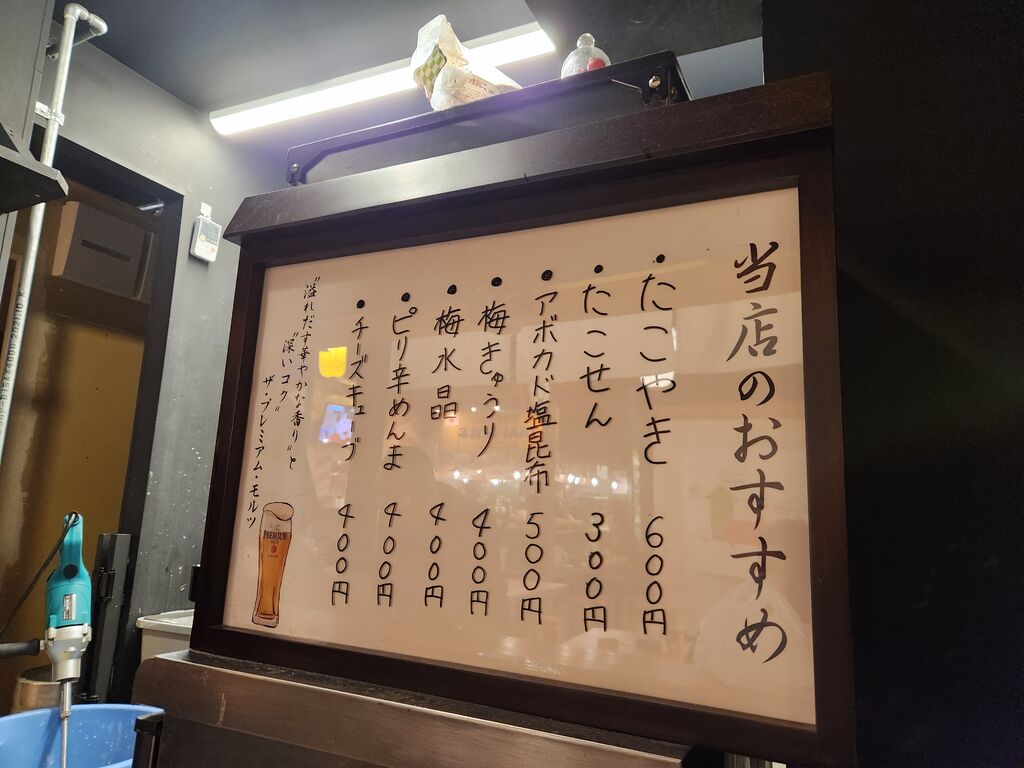 当店のおすすめ
・たこやき 600円
・たこせん 300円
・アボカド塩昆布 500円
・梅きゅうり 400円
・梅水晶 400円
・ピリ辛めんま 400円
・チーズキューブ 400円
"溢れだす華やかな香り"と
"深いコク"
ザ・プレミアム・モルツ
The
PREMIUM